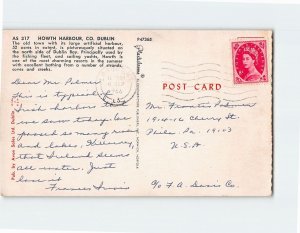 AS 217 HOWTH HARBOUR, CO. DUBLIN
The old town with its large artificial harbour,
52 acres in extent, is picturesquely situated on
the north side of Dublin Bay. Principally used by
the fishing fleet, and sailing yachts, Howth is
one of the most charming resorts in the summer
with excellent bathing from a number of strands,
coves and creeks.
P47364
POST CARD
Pub. by Avon Sales Ltd. Dublin
Dear Mr Palmer
This is typical
Irish harbor
we saw today. We
passed so many rivers
and lakes,
that Ireland seems
all water. Just
love it
Frances
Mr. Palmer
1914-16 Cherry St.
Phila. Pa. 19103
U.S.A
c/o F.A. Davis Co.